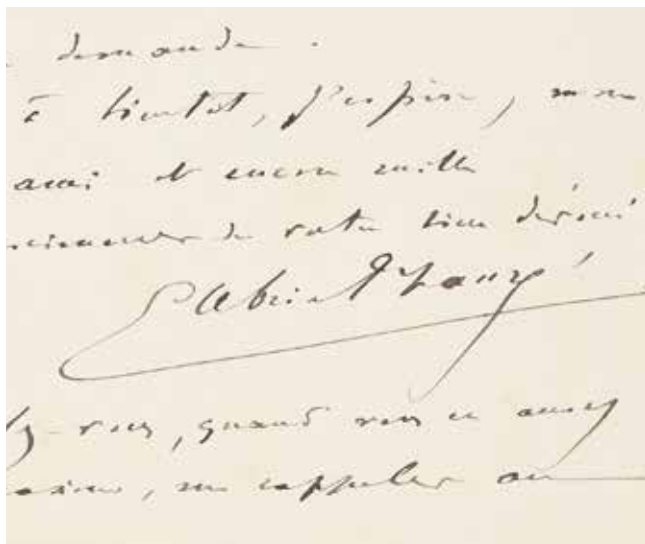 demande.
à bientôt, j'espère, mon
ami et encore mille
de votre bien dévoué
Gabriel Fauré
vous, quand vous en aurez
me rappeler au